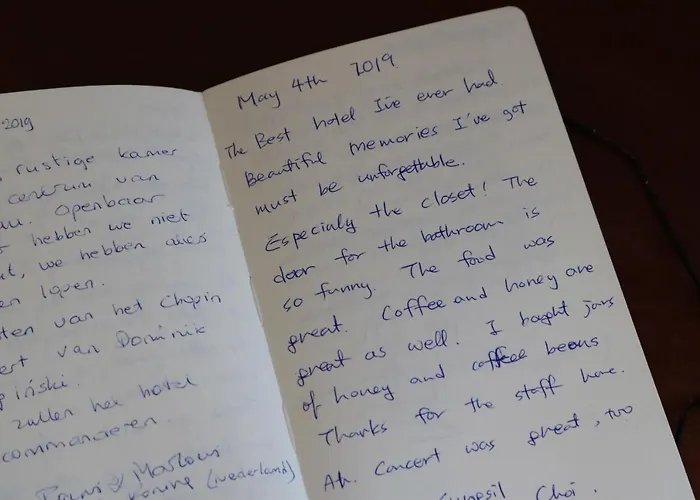 2019
rustige kamer
centrum van
Openbaar
hebben we niet
we hebben alles
lopen.
van het Chopin
van Dominik
zullen het hotel
(nederland)
May 4th 2019
The Best hotel I've ever had
Beautiful memories I've got
must be unforgettable.
Especialy the closet! The
door for the bathroom is
so funny. The food was
great. Coffee and honey are
great as well. I bought jars
of honey and coffee beans
Thanks for the staff here.
Ah. Concert was great, too
Choi.